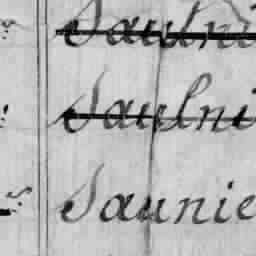 Saulni
Saulni
Saunie